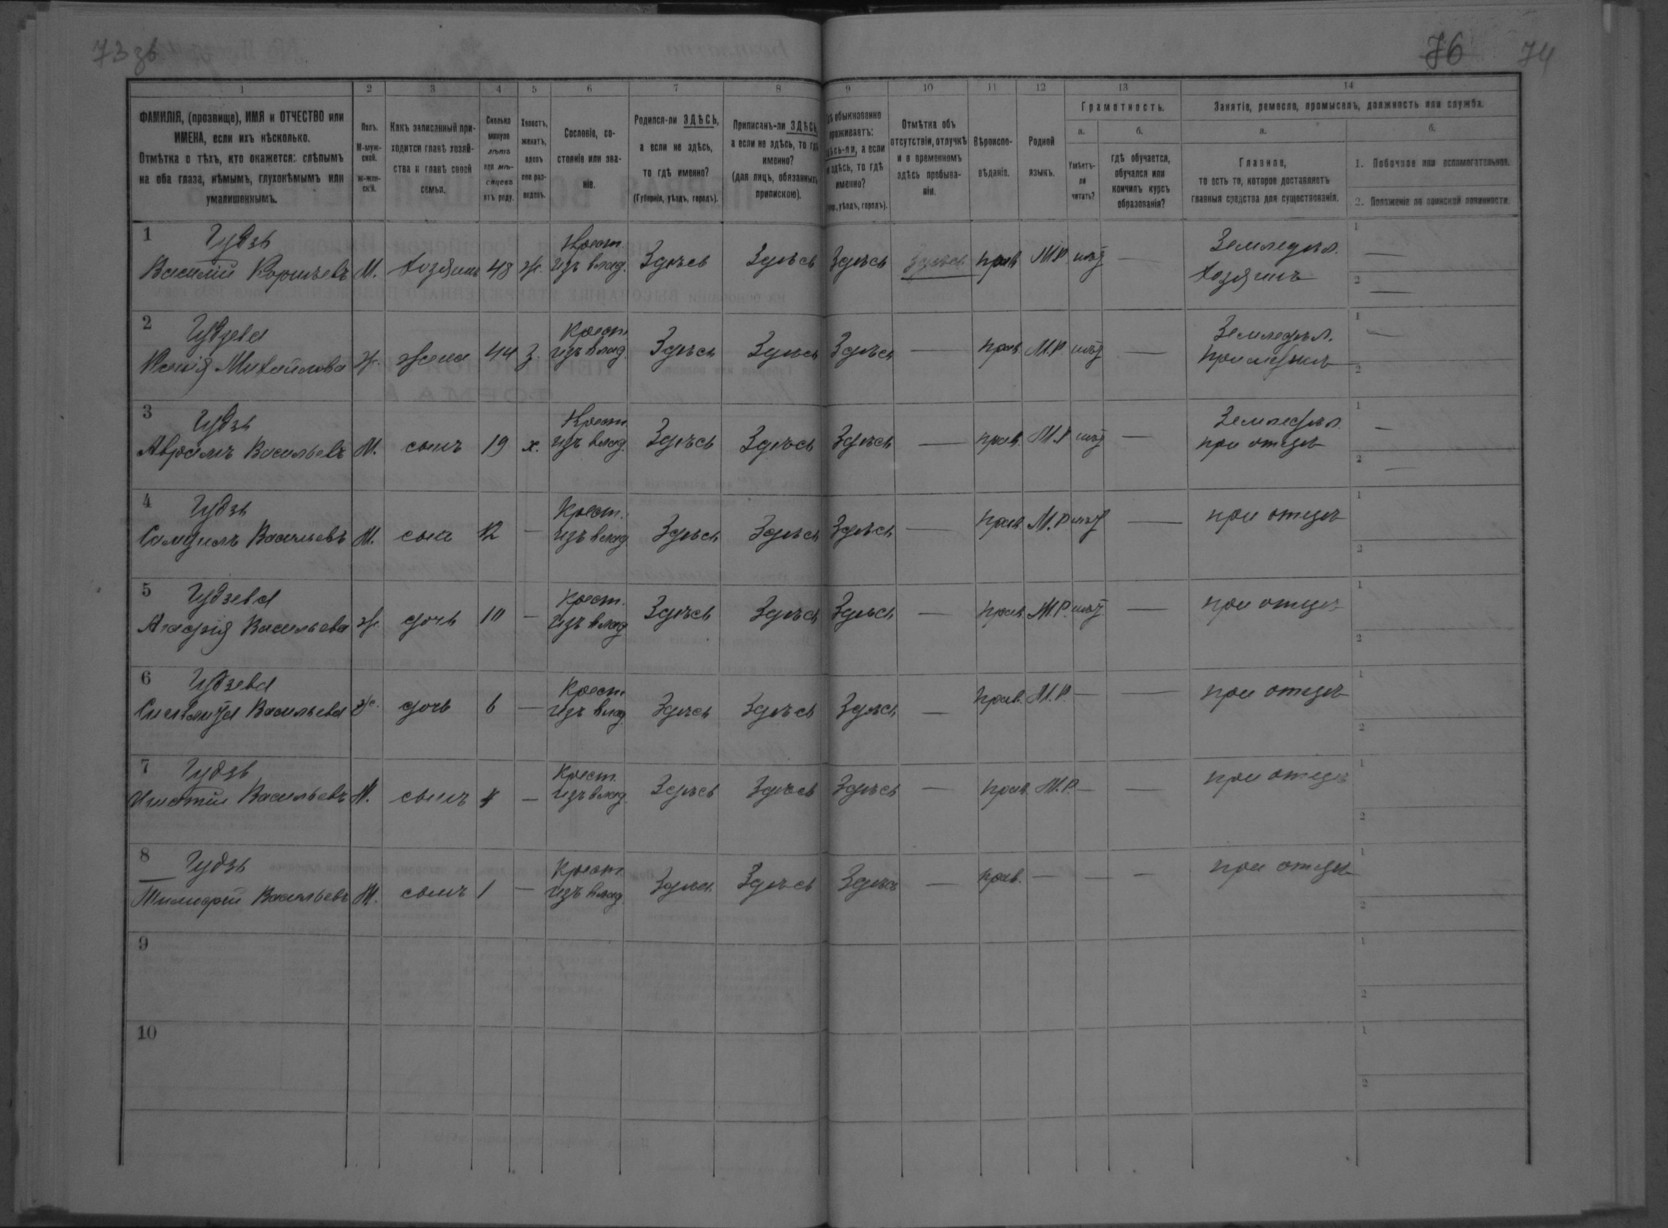 73 зв
76 74
1 2 3 4 5 6 7 8 9 10 11 12 13 14
ФАМИЛІЯ, (прозвище), ИМЯ и ОТЧЕСТВО или
ИМЕНА, если ихъ нѣсколько.
Отмѣтка о тѣхъ, кто окажется: слѣпымъ
на оба глаза, нѣмымъ, глухонѣмымъ или
умалишеннымъ.
Полъ.
М-муж-
ской.
Ж-жен-
скій.
Какъ записанный при-
ходится главѣ хозяй-
ства и главѣ своей
семьи.
Сколько
минуло
лѣтъ
или мѣ-
сяцевъ
отъ роду.
Холостъ,
женатъ,
вдовъ
или раз-
веденъ.
Сословіе, со-
стояніе или зва-
ніе.
Родился-ли ЗДѢСЬ,
а если не здѣсь,
то гдѣ именно?
(Губернія, уѣздъ, городъ).
Приписанъ-ли ЗДѢСЬ,
а если не здѣсь, то гдѣ
именно?
(для лицъ, обязанныхъ
припискою).
обыкновенно
проживаетъ:
здѣсь-ли, а если
не здѣсь, то гдѣ
именно?
уѣздъ, городъ).
Отмѣтка объ
отсутствіи, отлучкѣ
и о временномъ
здѣсь пребыва-
ніи.
Вѣроиспо-
вѣданіе.
Родной
языкъ.
Грамотность.
а. б.
Умѣетъ-
ли
читать?
гдѣ обучается,
обучался или
кончилъ курсъ
образованія?
Занятіе, ремесло, промыселъ, должность или служба.
а. б.
Главное,
то есть то, которое доставляетъ
главныя средства для существованія.
1. Побочное или вспомогательное.
2. Положеніе по воинской повинности.
1 Гудзь Крест. Земледѣл. 1
Василій М. хозяинъ 48 ж. изъ влад. Здѣсь Здѣсь Здѣсь здѣсь прав. М.Р. — Хозяинъ 2
2 Гудзева Крест. Земледѣл. 1
Ксенія Михайлова ж. жена 44 з. изъ влад. Здѣсь Здѣсь Здѣсь — прав. М.Р. — 2
3 Гудзь Крест. Земледѣл. 1
Авраамъ Васильевъ М. сынъ 19 х. изъ влад. Здѣсь Здѣсь Здѣсь — прав. М.Р. — при отцѣ 2
4 Гудзь Крест. при отцѣ 1
Самуилъ Васильевъ М. сынъ 12 — изъ влад. Здѣсь Здѣсь Здѣсь — прав. М.Р. — 2
5 Гудзева Крест. при отцѣ 1
Васильева ж. дочь 10 — изъ влад. Здѣсь Здѣсь Здѣсь — прав. М.Р. — 2
6 Гудзева Крест. при отцѣ 1
Васильева ж. дочь 6 — изъ влад. Здѣсь Здѣсь Здѣсь — прав. М.Р. — — 2
7 Гудзь Крест. при отцѣ 1
Игнатій Васильевъ М. сынъ 4 — изъ влад. Здѣсь Здѣсь Здѣсь — прав. М.Р. — — 2
8 Гудзь Крест. при отцѣ 1
Васильевъ М. сынъ 1 — изъ влад. Здѣсь Здѣсь Здѣсь — прав. — — — 2
9 1
2
10 1
2